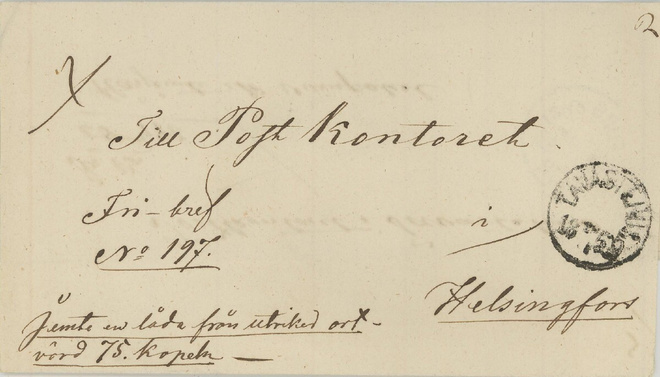 2
Till Post Kontoret
Fri-bref
i
No 197.
TAVASTEHUS
Helsingfors
Jemte en låda från utrikes ort
värd 75. kopek